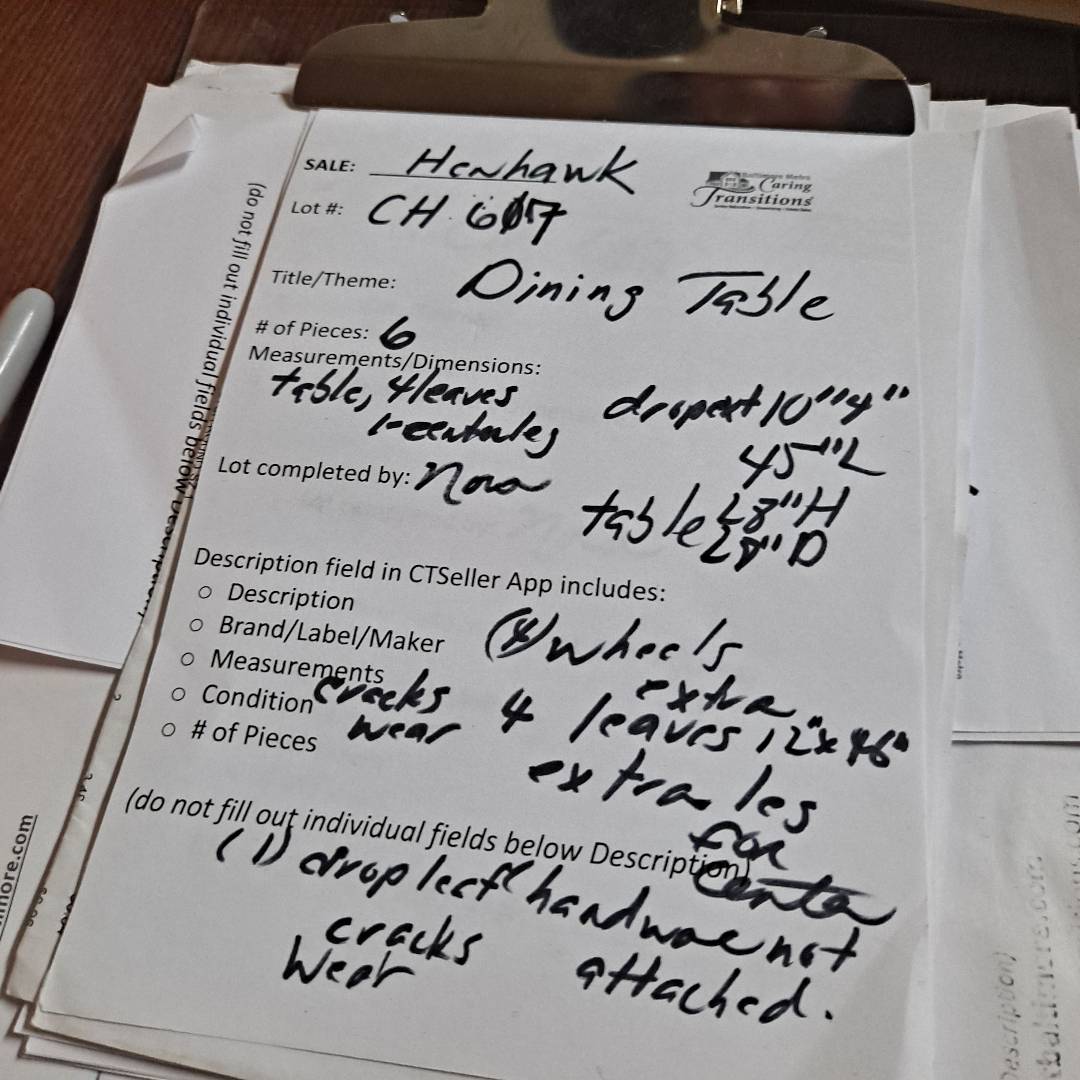 SALE: Henhawk
Baltimore Metro
Caring
Transitions
Lot #: CH 607
Title/Theme: Dining Table
# of Pieces: 6
Measurements/Dimensions:
table, 4 leaves
1-center leg
dropext 10" 4"
45"L
Lot completed by: Nora
table 28"H
28" D
Description field in CTSeller App includes:
○ Description
○ Brand/Label/Maker
(4) wheels
○ Measurements
○ Condition cracks
wear
extra
4 leaves 12" x 46"
○ # of Pieces
extra leg
for
center
(do not fill out individual fields below Description)
(1) drop leaf hardware not
attached.
cracks
wear
(do not fill out individual fields below Description)
more.com